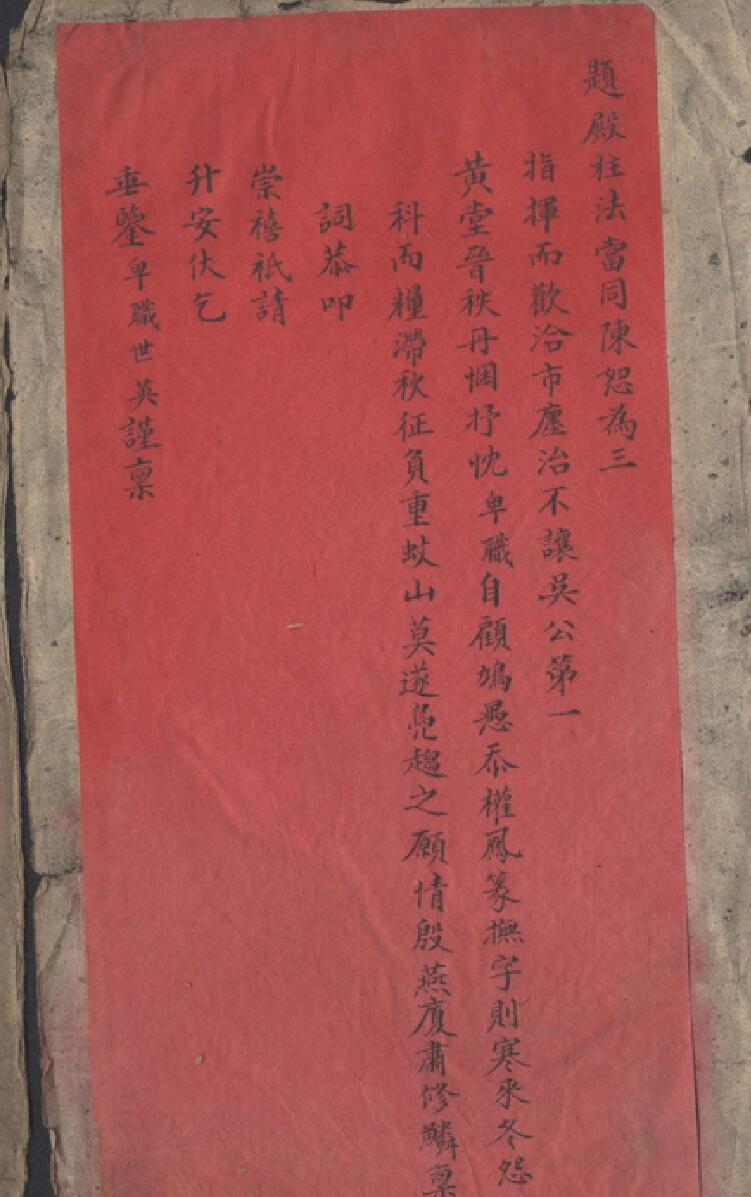 題殿柱法當同陳恕為三
指揮而歡洽市廛治不讓吳公第一
黃堂晉秩丹悃抒忱卑職自顧鳩愚忝權鳳篆撫字則寒來冬怨
科而糧滯秋征負重蚊山莫遂鳧趨之願情殷燕廈肅修鱗稟
詞恭叩
崇禧祇請
升安伏乞
垂鑒卑職世英謹稟